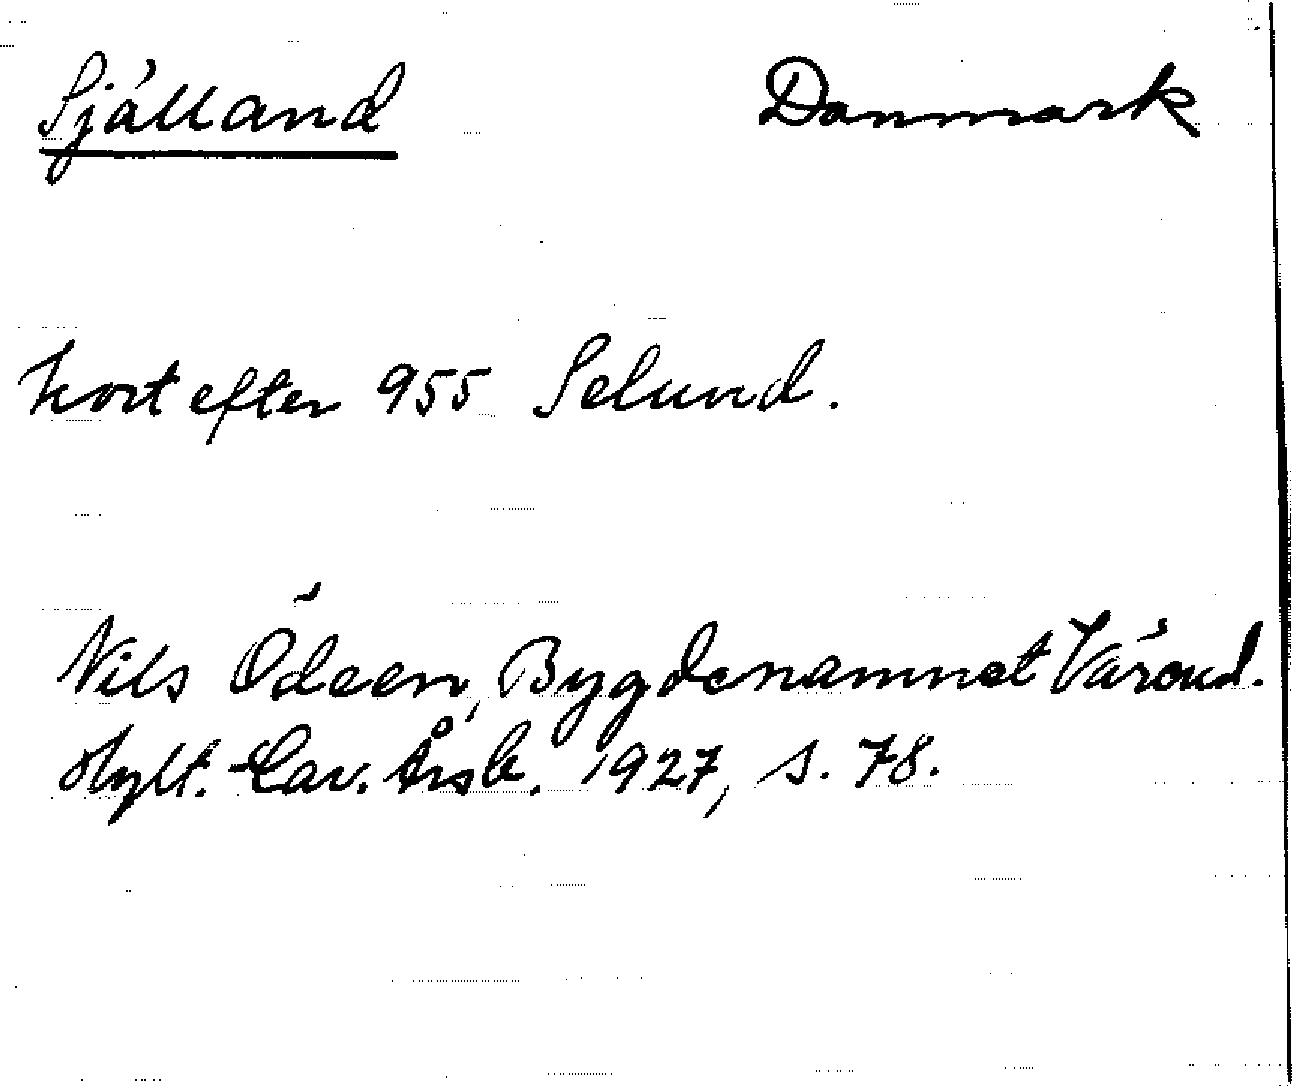 Själland Danmark
kort efter 955 Selund.
Nils Ödeen, Bygdenamnet Värend.
Hylt.-Cav. Årsb. 1927, s. 78.